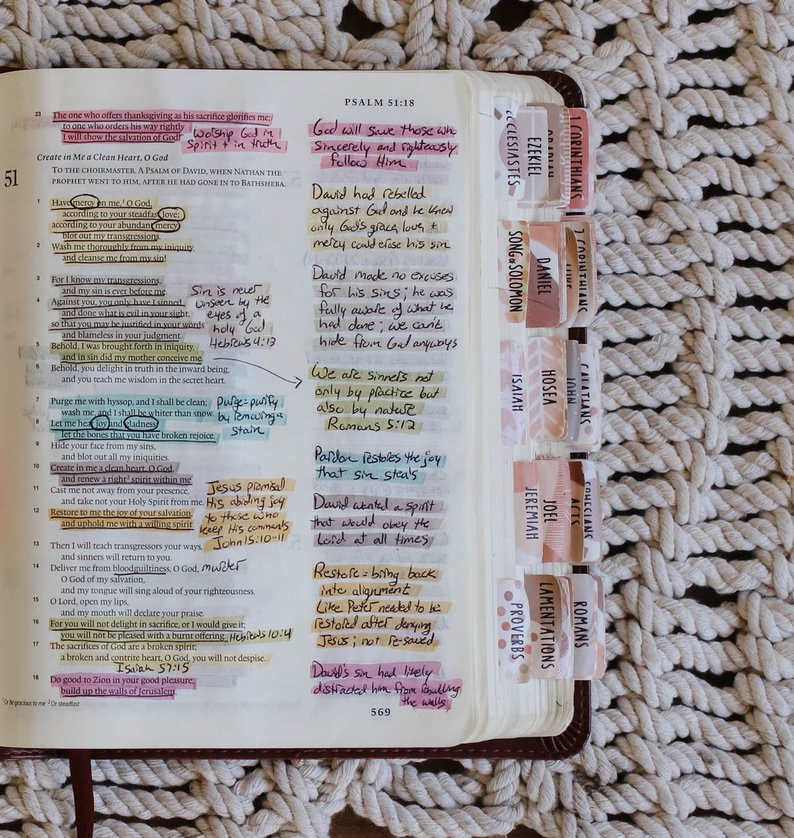 PSALM 51:18
23 The one who offers thanksgiving as his sacrifice glorifies me;
to one who orders his way rightly
I will show the salvation of God!"
Worship God in
spirit + in truth
Create in Me a Clean Heart, O God
51 TO THE CHOIRMASTER. A PSALM OF DAVID, WHEN NATHAN THE
PROPHET WENT TO HIM, AFTER HE HAD GONE IN TO BATHSHEBA.
1 Have mercy on me,¹ O God,
according to your steadfast love;
according to your abundant mercy
blot out my transgressions.
2 Wash me thoroughly from my iniquity,
and cleanse me from my sin!
3 For I know my transgressions,
and my sin is ever before me.
4 Against you, you only, have I sinned
and done what is evil in your sight,
so that you may be justified in your words
and blameless in your judgment.
5 Behold, I was brought forth in iniquity,
and in sin did my mother conceive me.
6 Behold, you delight in truth in the inward being,
and you teach me wisdom in the secret heart.
Sin is never
unseen by the
eyes of a
holy God
Hebrews 4:13
7 Purge me with hyssop, and I shall be clean;
wash me, and I shall be whiter than snow.
8 Let me hear joy and gladness;
let the bones that you have broken rejoice.
9 Hide your face from my sins,
and blot out all my iniquities.
10 Create in me a clean heart, O God,
and renew a right² spirit within me.
11 Cast me not away from your presence,
and take not your Holy Spirit from me.
12 Restore to me the joy of your salvation,
and uphold me with a willing spirit.
purge=purify
by removing a
stain
Jesus promised
His abiding joy
to those who
keep His commands
John 15:10-11
13 Then I will teach transgressors your ways,
and sinners will return to you.
14 Deliver me from bloodguiltiness, O God, murder
O God of my salvation,
and my tongue will sing aloud of your righteousness.
15 O Lord, open my lips,
and my mouth will declare your praise.
16 For you will not delight in sacrifice, or I would give it;
you will not be pleased with a burnt offering. Hebrews 10:4
17 The sacrifices of God are a broken spirit;
a broken and contrite heart, O God, you will not despise.
Isaiah 57:15
18 Do good to Zion in your good pleasure;
build up the walls of Jerusalem;
¹ Or Be gracious to me ² Or steadfast
God will save those who
sincerely and righteously
follow Him
David had rebelled
against God and he knew
only God's grace, love +
mercy could erase his sin
David made no excuses
for his sins; he was
fully aware of what he
had done; we can't
hide from God anyways
We are sinners not
only by practice but
also by nature
Romans 5:12
Pardon restores the joy
that sin steals
David wanted a spirit
that would obey the
Lord at all times
Restore = bring back
into alignment
Like Peter needed to be
restored after denying
Jesus; not re-saved
David's sin had likely
distracted him from rebuilding
the walls
569
ECCLESIASTES
EZEKIEL
OBADIAH
1 CORINTHIANS
SONG OF SOLOMON
DANIEL
LUKE
2 CORINTHIANS
ISAIAH
HOSEA
JOHN
GALATIANS
JEREMIAH
JOEL
ACTS
EPHESIANS
PROVERBS
LAMENTATIONS
ROMANS